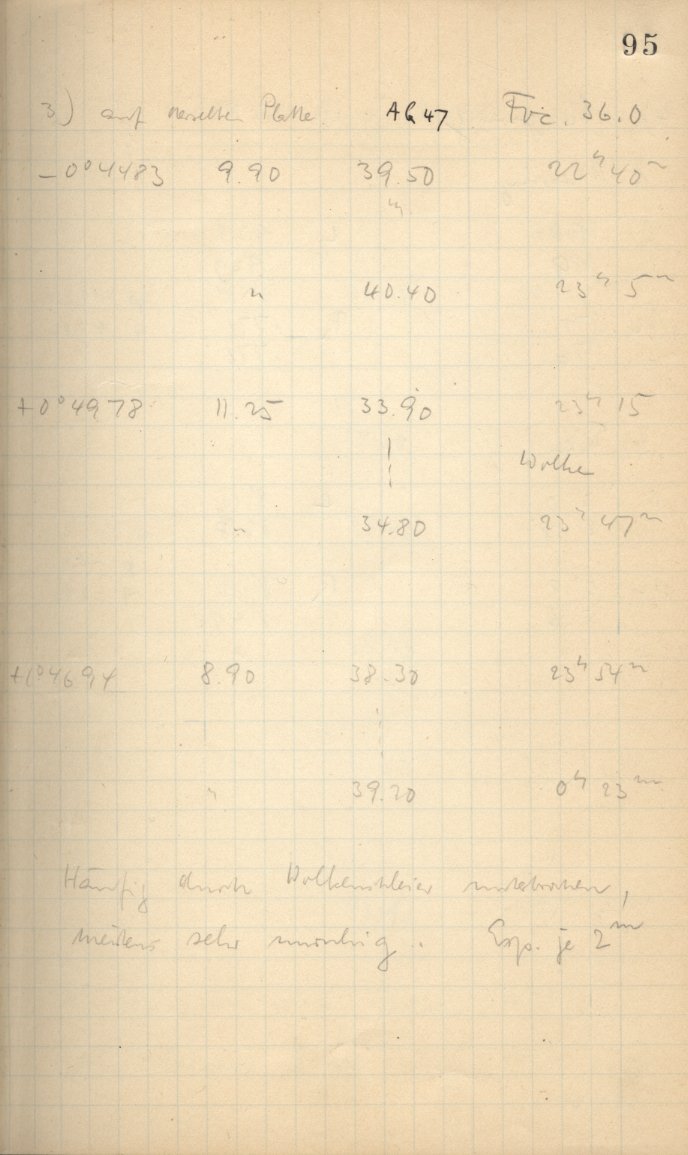 95
3) auf derselben Platte AG 47 Foc. 36.0
-0°4483 9.90 39.50 22ʰ 40ᵐ
"
" 40.40 23ʰ 5ᵐ
+0°4978 11.25 33.90 23ʰ 15
Wolke
" 34.80 23ʰ 47ᵐ
+1°4694 8.90 38.30 23ʰ 54ᵐ
" 39.20 0ʰ 23ᵐ
Häufig durch Wolkenschleier unterbrochen,
meistens sehr unruhig. Exp. je 2ᵐ